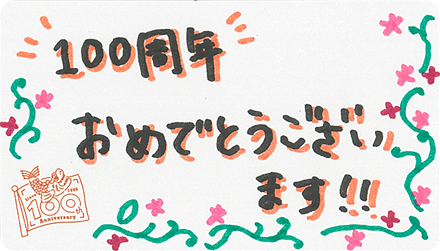 100周年
おめでとうござい
ます!!!
100th
Anniversary